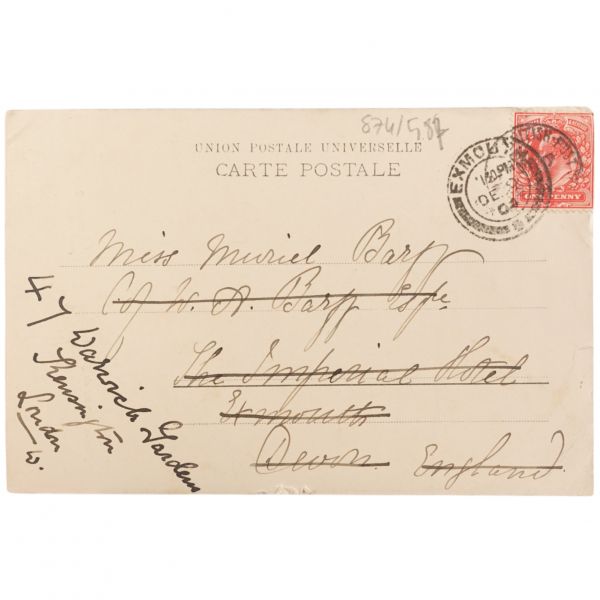 874/587
UNION POSTALE UNIVERSELLE
CARTE POSTALE
EXMOUTH
DE
04
ONE PENNY
Miss Muriel Barff
C/o W. A. Barff Esqre.
The Imperial Hotel
Exmouth
Devon. England
47 Warwick Gardens
Kensington
London
W.